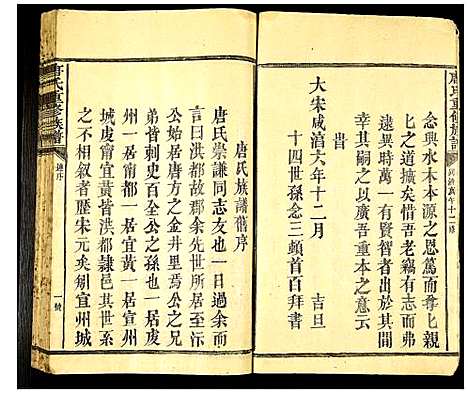 唐氏重修族譜
念典水木本源之恩篤而尊礼親
比之道擴矣惜吾老竊有志而弗
逮異時萬一有賢智者出於其間
幸其嗣之以廣吾重本之意云
旹
大宋咸淳六年十二月 吉旦
十四世孫念三頓首百拜書
唐氏族譜舊序
唐氏崇謙同志友也一日過余而
言曰洪都故郡余先世所居至沶
弟皆刺史百全公之孫也一居虔
公始居唐方之金井里焉公之兄
州一居南都一居宜黃一居宣州
城虔甯宜黃皆依廬邑其世系
之不相叙者歴宋元矣剏宣州城
唐氏重修族譜
譜序
一號